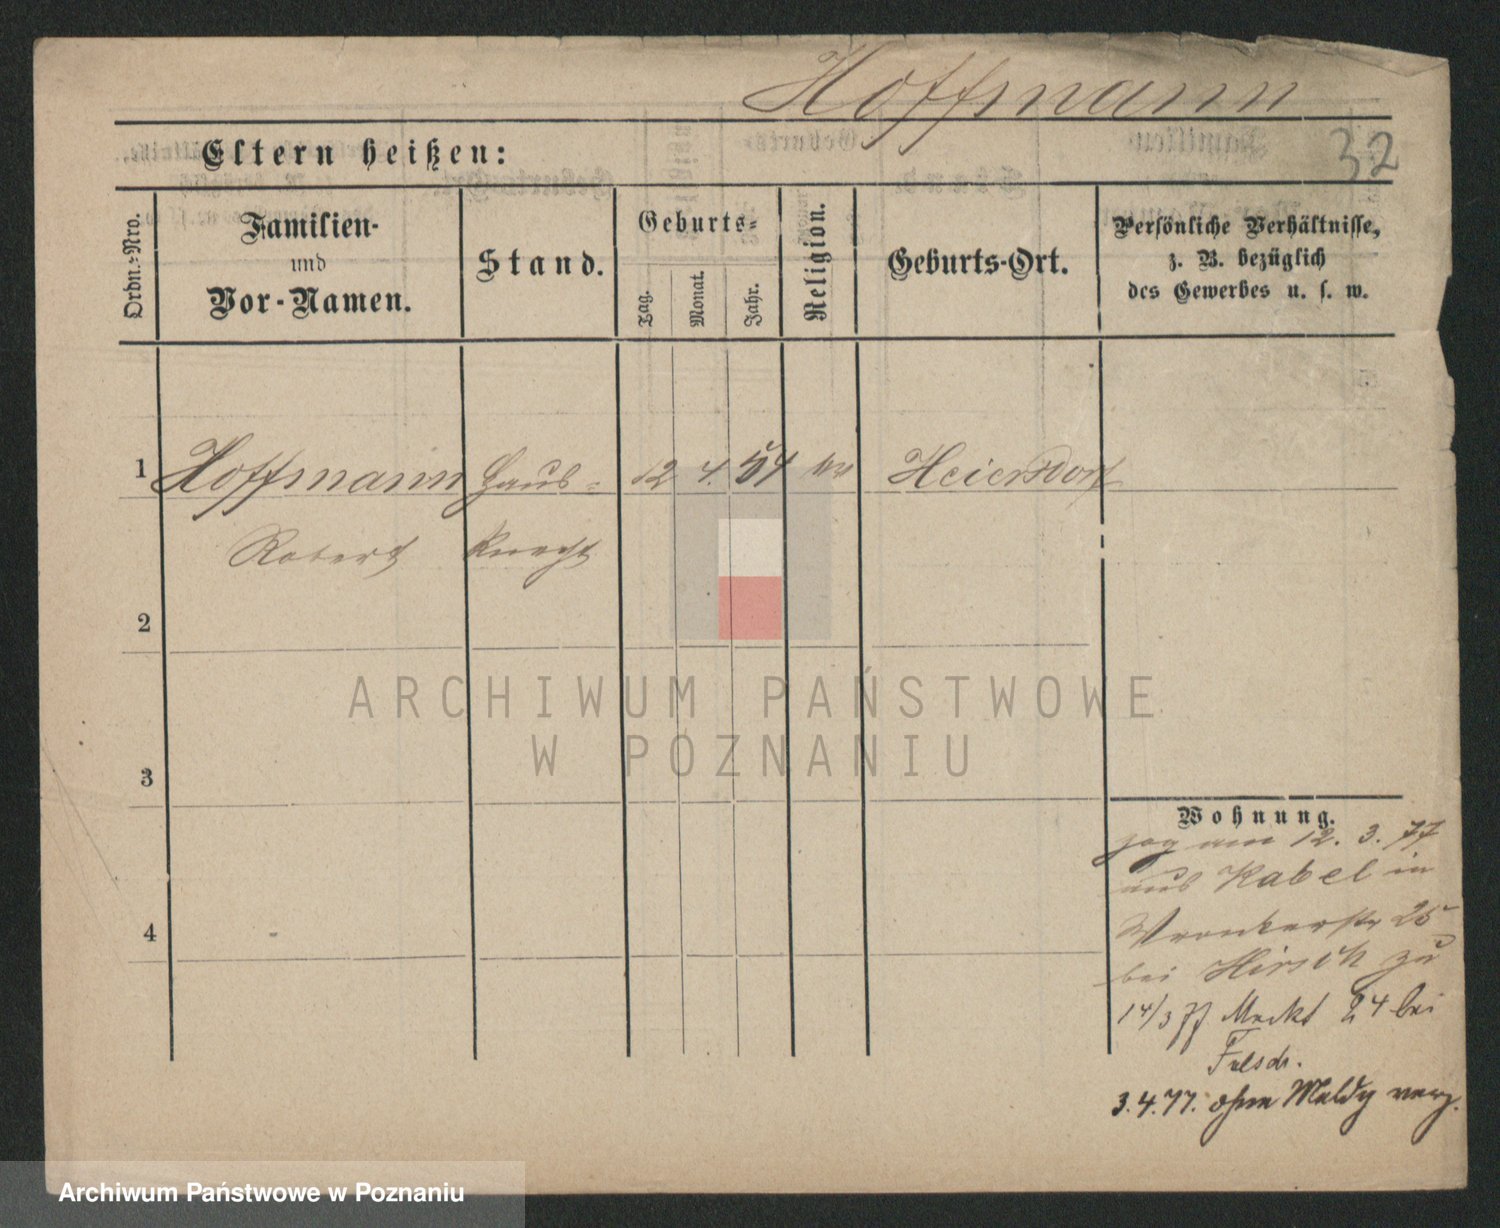 Hoffmann
32
Eltern heißen:
Ordn.-Nro.
Familien-
und
Vor-Namen.
Stand.
Geburts-
Tag.
Monat.
Jahr.
Religion.
Geburts-Ort.
Persönliche Verhältnisse,
z. B. bezüglich
des Gewerbes u. s. w.
1 Hoffmann Haus- 12 4. 54 Heiersdorf
Robert knecht
2
ARCHIWUM PAŃSTWOWE
W POZNANIU
3
Wohnung.
zog am 12. 3. 77
aus Kabel in
Wronkerstr 25
bei Hirsch zu
4
14/3 77 Markt 84 bei
3.4.77. ohne Meldg verz.
Archiwum Państwowe w Poznaniu